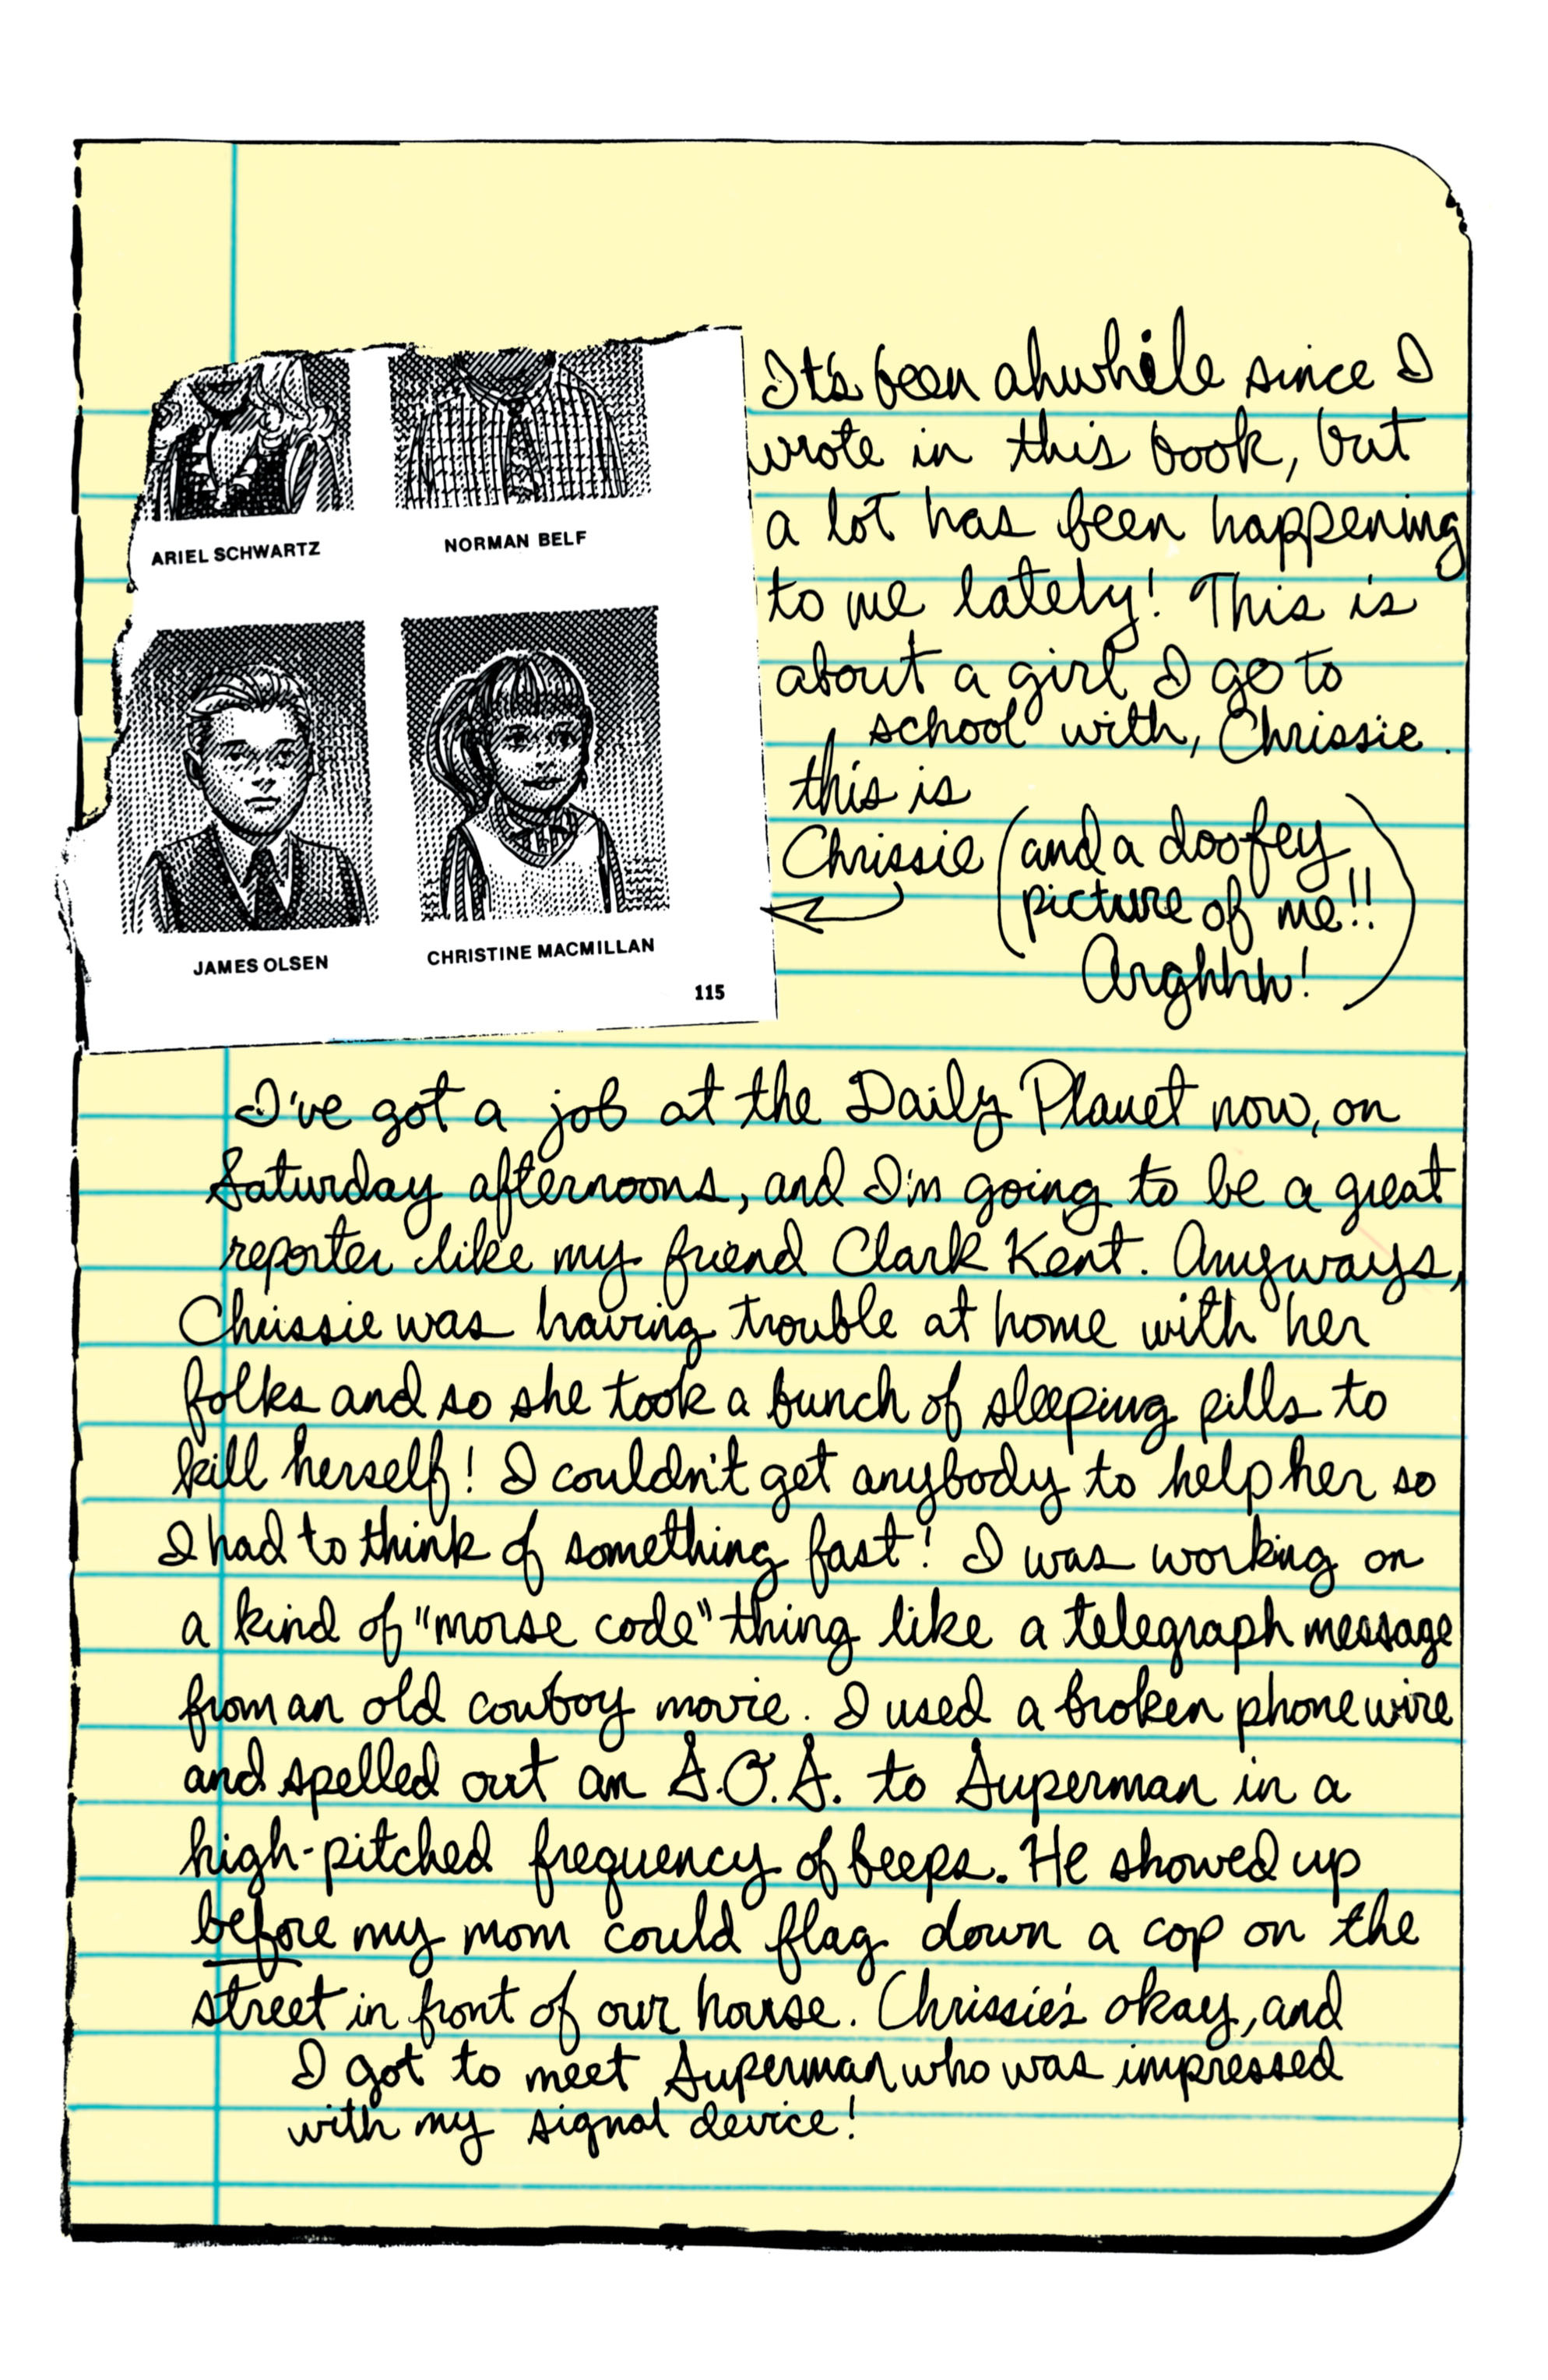 ARIEL SCHWARTZ
NORMAN BELF
JAMES OLSEN
CHRISTINE MACMILLAN
115
It's been ahwhile since I
wrote in this book, but
a lot has been happening
to me lately! This is
about a girl I go to
school with, Chrissie.
this is
Chrissie (and a doofey
picture of me!!
Arghhh!)
I've got a job at the Daily Planet now, on
Saturday afternoons, and I'm going to be a great
reporter like my friend Clark Kent. Anyways,
Chrissie was having trouble at home with her
folks and so she took a bunch of sleeping pills to
kill herself! I couldn't get anybody to help her so
I had to think of something fast! I was working on
a kind of "morse code" thing like a telegraph message
from an old cowboy movie. I used a broken phone wire
and spelled out an S.O.S. to Superman in a
high-pitched frequency of beeps. He showed up
before my mom could flag down a cop on the
street in front of our house. Chrissie's okay, and
I got to meet Superman who was impressed
with my signal device!